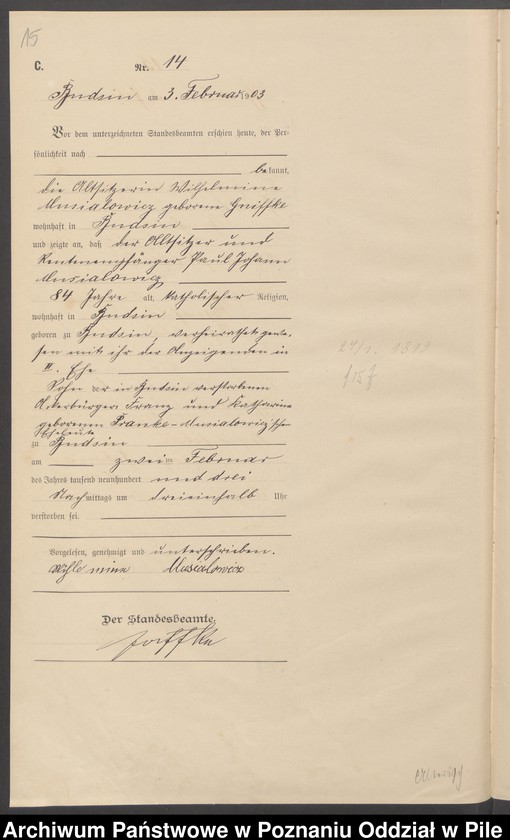 15
C.
Nr. 14
Budsin am 3. Februar 1903
Vor dem unterzeichneten Standesbeamten erschien heute, der Per-
sönlichkeit nach
bekannt,
die Altsitzerin Wilhelmine
Musialowicz geborene Gnißke
wohnhaft in Budsin
und zeigte an, daß der Altsitzer und
Rentenempfänger Paul Johann
Musialowicz
84 Jahre alt, katholischer Religion,
wohnhaft in Budsin
geboren zu Budsin, verheirathet gewe-
sen mit ihr der Anzeigenden in
II. Ehe
Sohn der in Budsin verstorbenen
Ackerbürger Franz und Katharina
geborenen Franke-Musialowicz'schen
Eheleute
zu Budsin
am zweiten Februar
des Jahres tausend neunhundert und drei
Nachmittags um dreieinhalb Uhr
verstorben sei.
Vorgelesen, genehmigt und unterschrieben.
Wihlemine Musialowicz
Der Standesbeamte.
1819
Archiwum Państwowe w Poznaniu Oddział w Pile